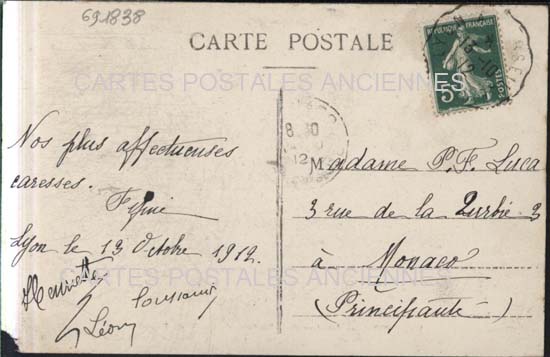 691838
CARTE POSTALE
RÉPUBLIQUE FRANÇAISE
5c
POSTES
13-10
12
CARTES POSTALES ANCIENNES
8 30
12
Nos plus affectueuses
caresses.
Lyon le 13 Octobre 1912.
Henriette
Léon
Madame P. F. Luca
3 rue de la Turbie 3
à Monaco
(Principauté)
CARTES POSTALES ANCIENNES